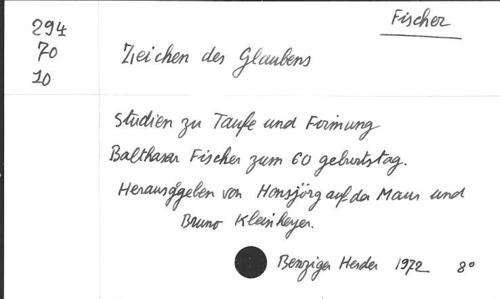 Fischer
294
70
10
Zeichen des Glaubens
Studien zu Taufe und Firmung
Balthasar Fischer zum 60 geburtstag.
Herausgegeben von Hansjörg auf der Maur und
Bruno Kleinheyer.
Benziger Herder 1972 8°